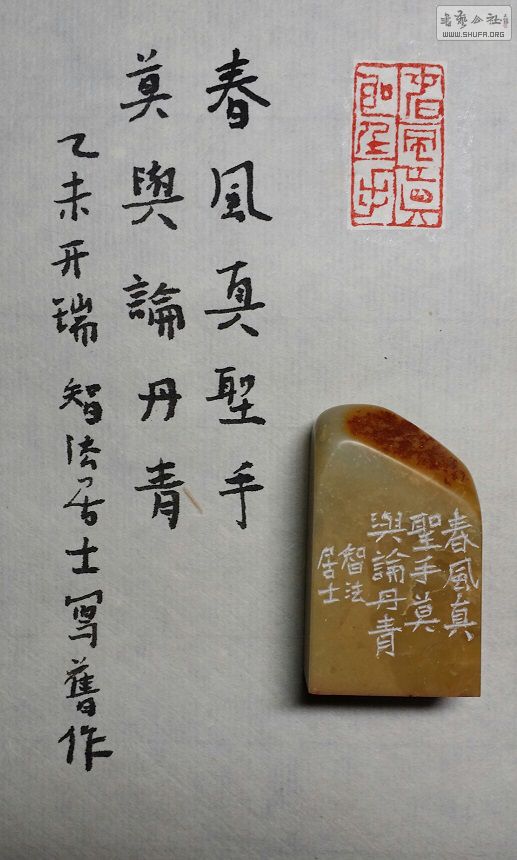 書藝公社
WWW.SHUFA.ORG
春風真聖手
莫與論丹青
乙未开瑞 智法居士写舊作
春風真
聖手莫
與論丹青
智法
居士